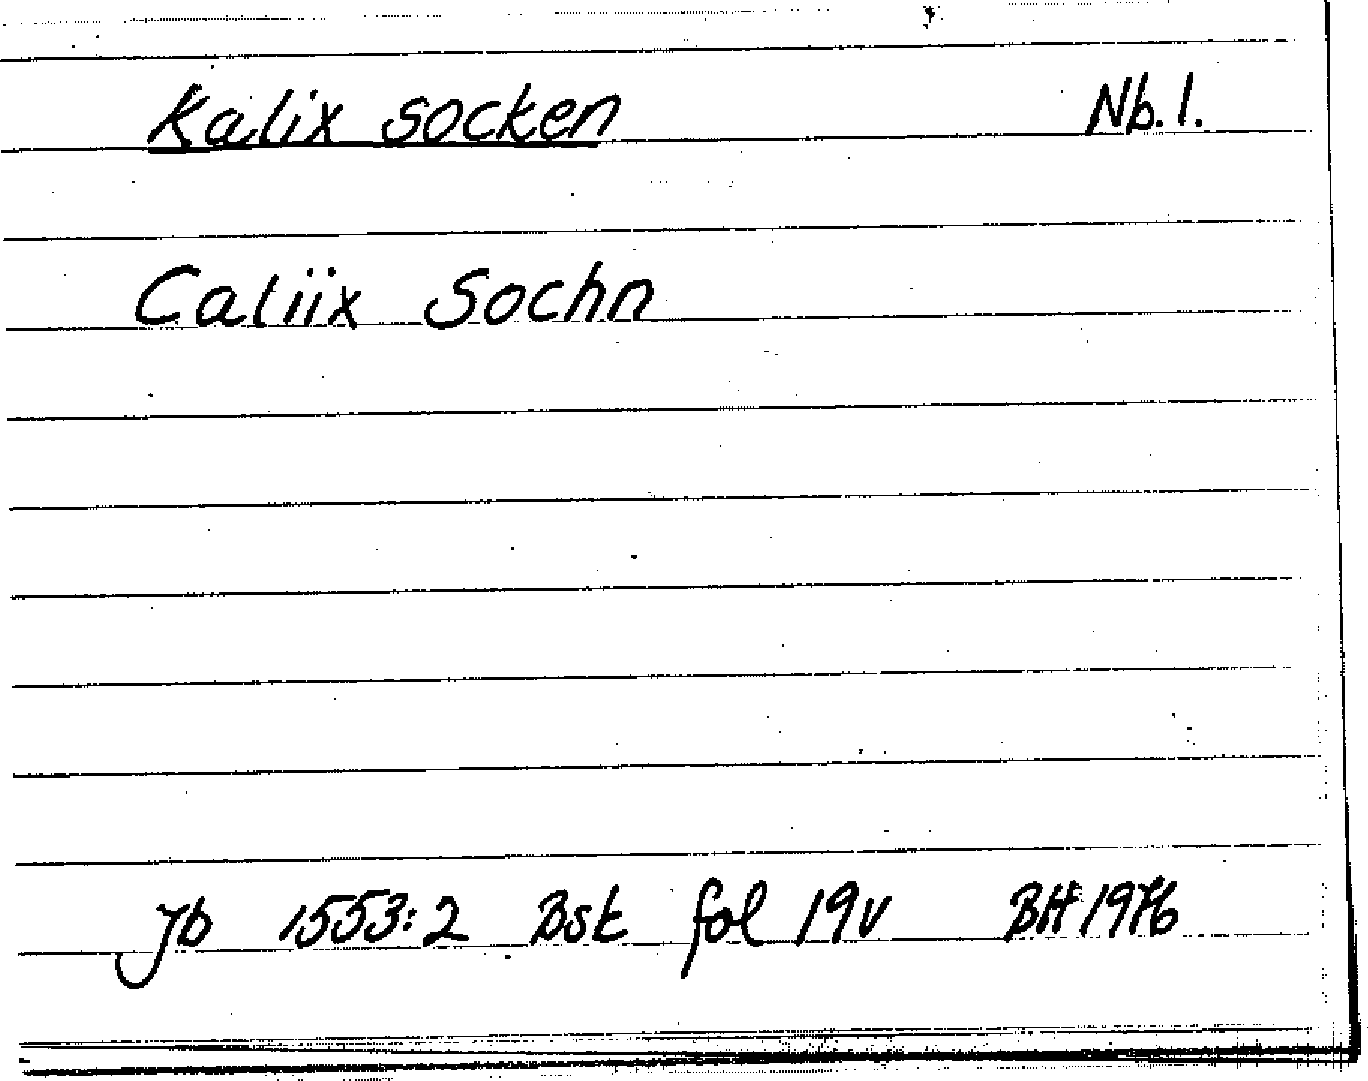 Kalix socken Nb. l.
Caliix Sochn
Jb 1553:2 Bst fol 19v BH 1976